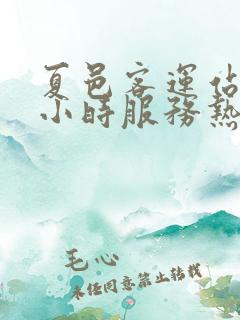 夏邑客運站
小時服務熱
毛心
未经同意禁止转载